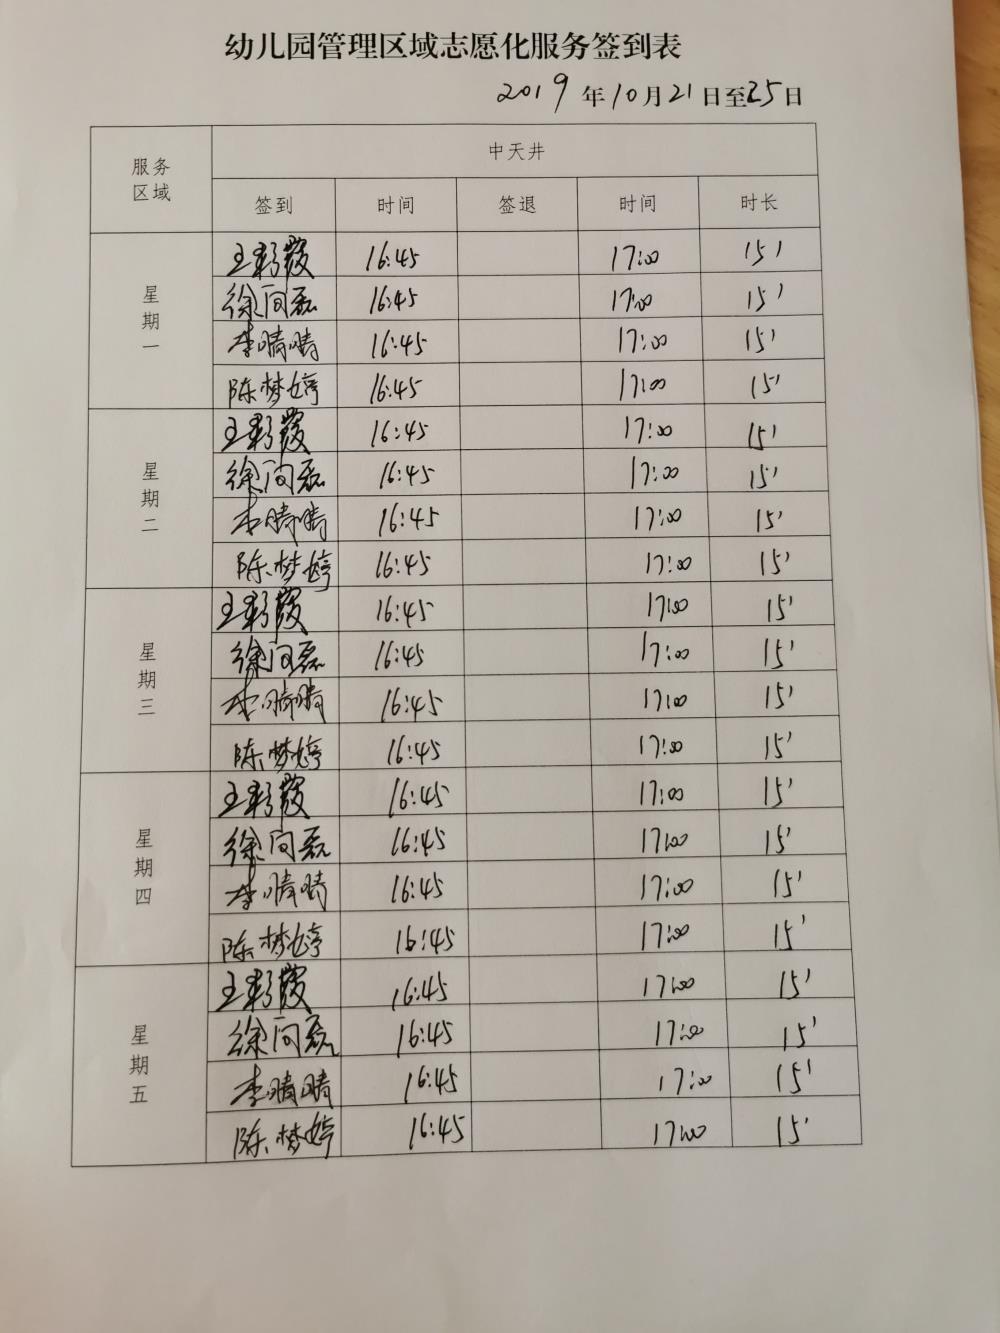 幼儿园管理区域志愿化服务签到表
2019年10月21日至25日
服务区域 中天井
签到 时间 签退 时间 时长
星期一
王彩霞 16:45 17:00 15'
徐问磊 16:45 17:00 15'
李晴晴 16:45 17:00 15'
陈梦婷 16:45 17:00 15'
星期二
王彩霞 16:45 17:00 15'
徐问磊 16:45 17:00 15'
李晴晴 16:45 17:00 15'
陈梦婷 16:45 17:00 15'
星期三
王彩霞 16:45 17:00 15'
徐问磊 16:45 17:00 15'
李晴晴 16:45 17:00 15'
陈梦婷 16:45 17:00 15'
星期四
王彩霞 16:45 17:00 15'
徐问磊 16:45 17:00 15'
李晴晴 16:45 17:00 15'
陈梦婷 16:45 17:00 15'
星期五
王彩霞 16:45 17:00 15'
徐问磊 16:45 17:00 15'
李晴晴 16:45 17:00 15'
陈梦婷 16:45 17:00 15'